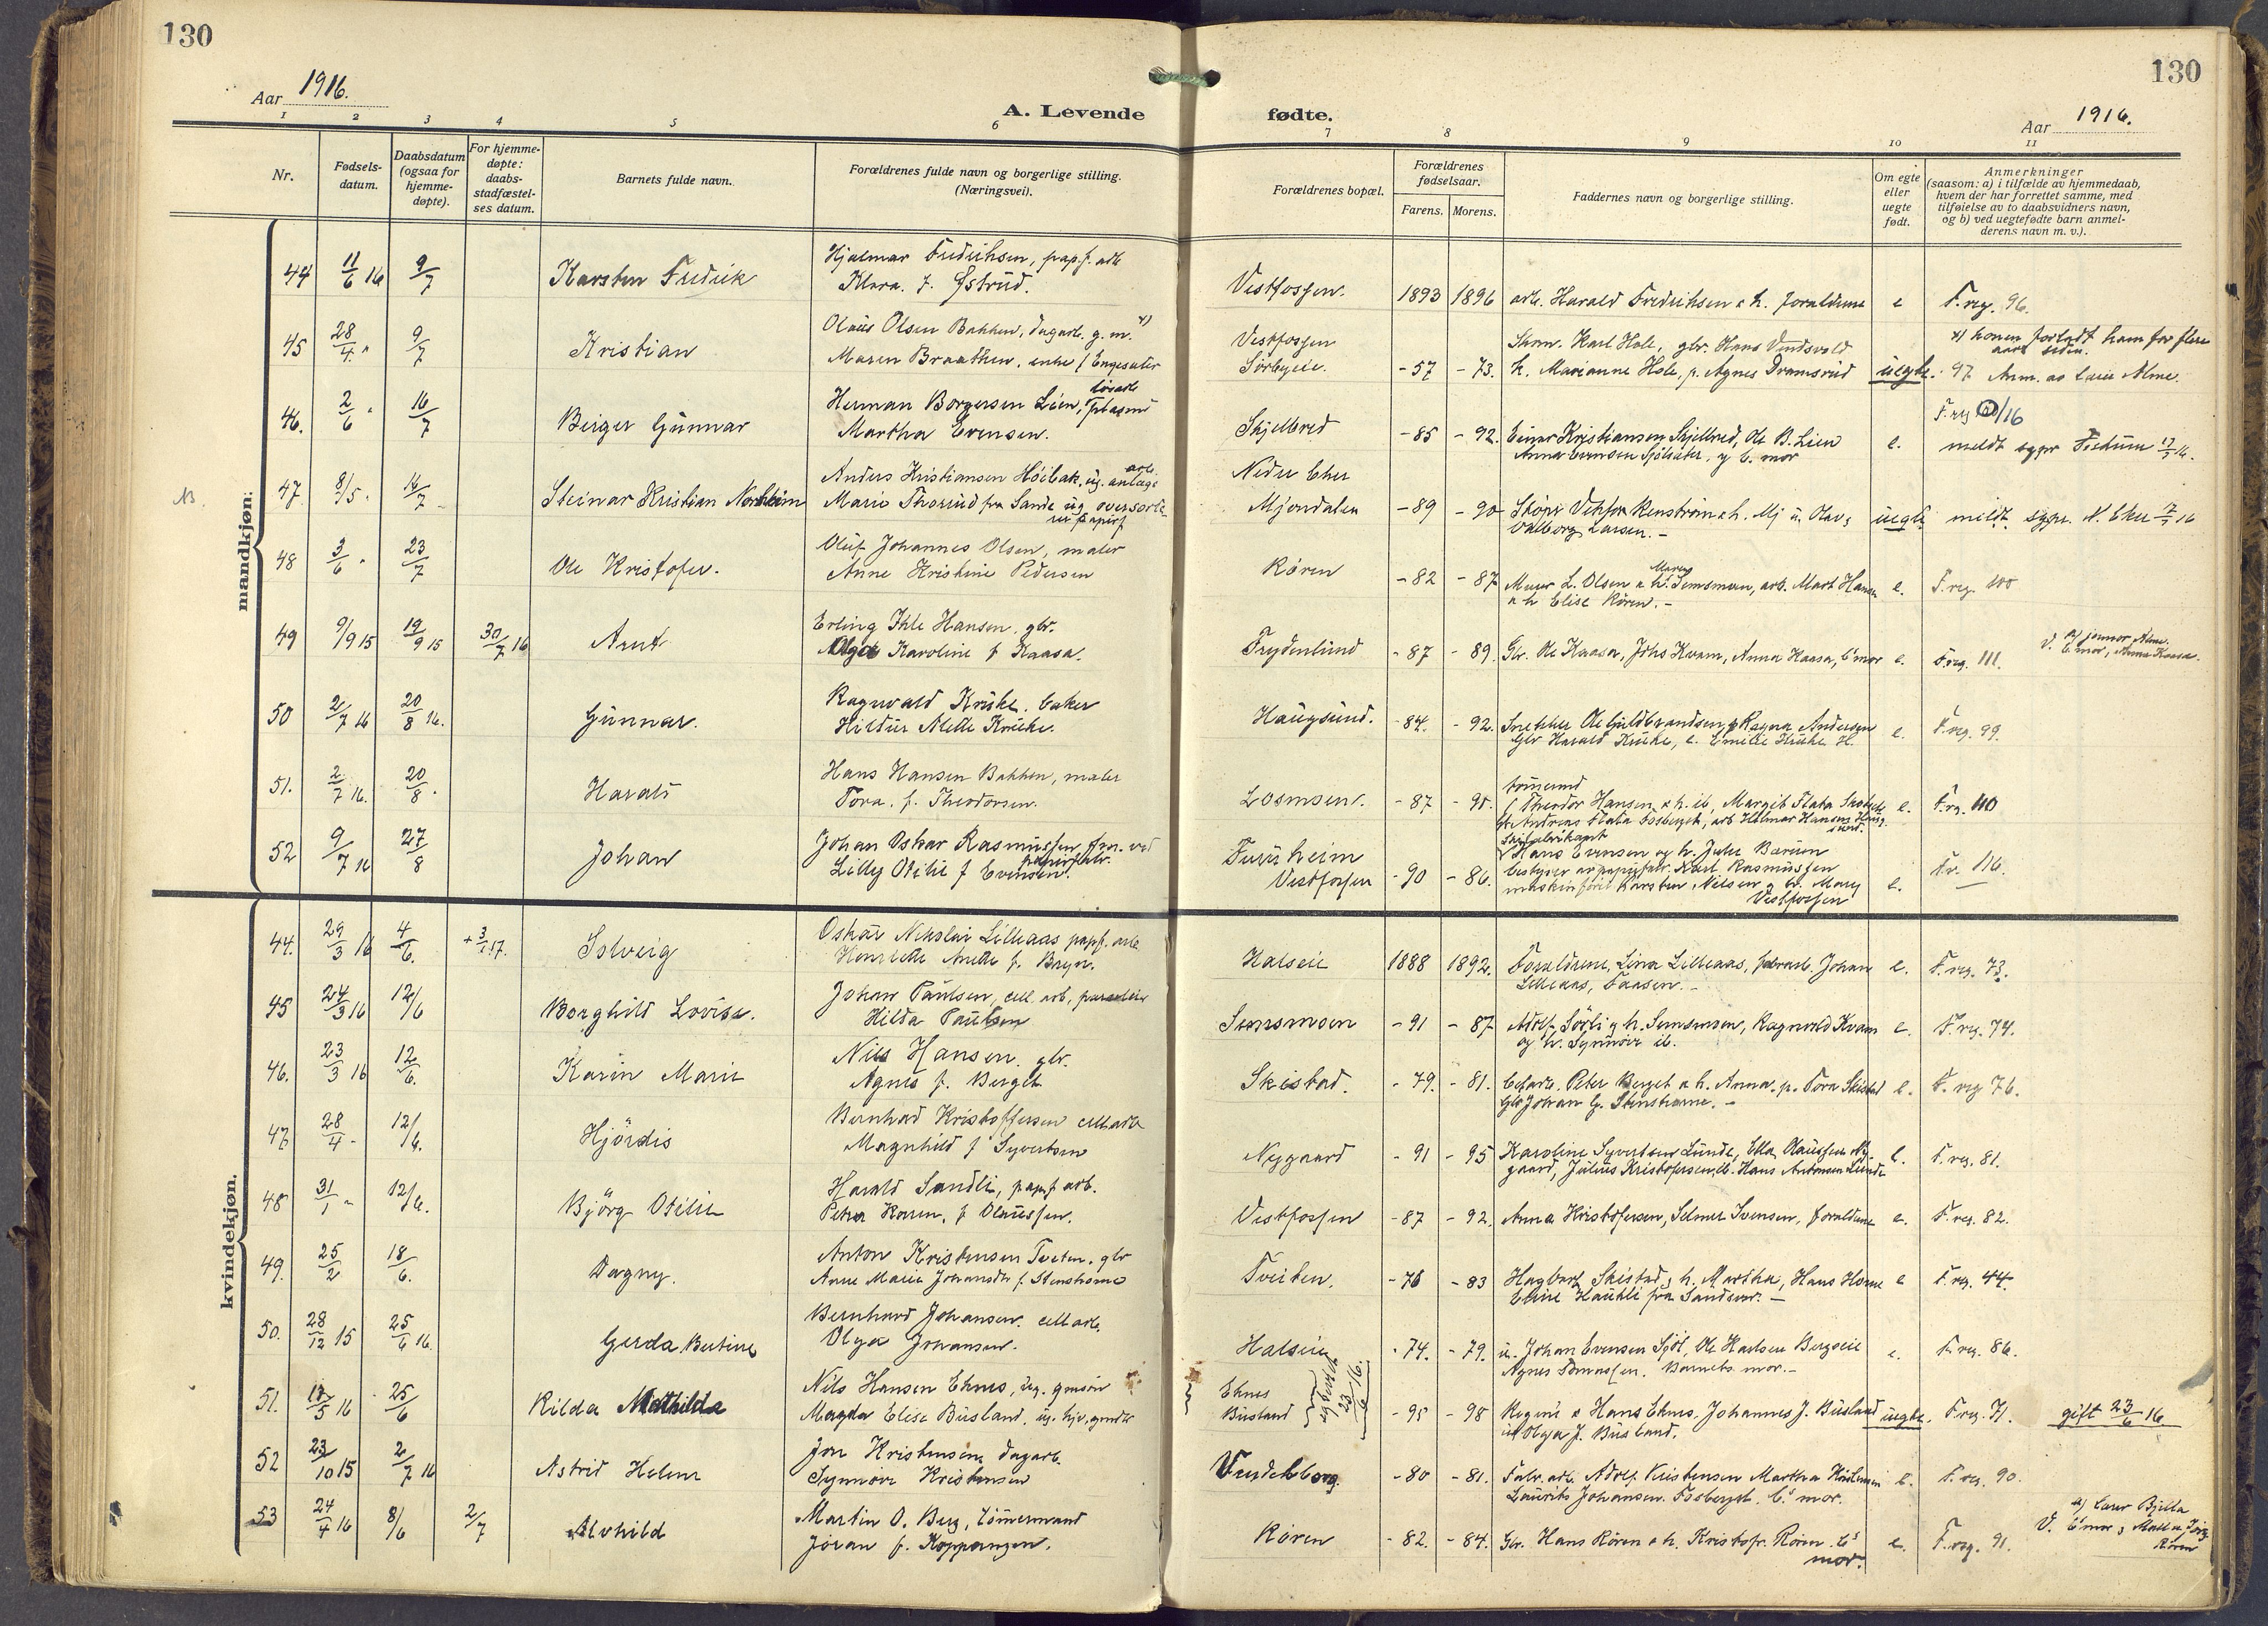 130
130
Aar 1916.
A. Levende fødte.
Aar 1916.
1 2 3 4 5 6 7 8 9 10 11
Nr.
Fødsels-
datum.
Daabsdatum
(ogsaa for
hjemme-
døpte).
For hjemme-
døpte:
daabs-
stadfæstel-
ses datum.
Barnets fulde navn.
Forældrenes fulde navn og borgerlige stilling.
(Næringsvei).
Forældrenes bopæl.
Forældrenes
fødselsaar.
Farens. Morens.
Faddernes navn og borgerlige stilling.
Om egte
eller
uegte
født.
Anmerkninger
(saasom: a) i tilfælde av hjemmedaab,
hvem der har forrettet samme, med
tilføielse av to daabsvidners navn,
og b) ved uegtefødte barn anmel-
derens navn m. v.).
mandkjøn:
44 11/6 16 9/7 Karsten Fredrik
Hjalmar Fredriksen, papf. arb
Klara f. Østrud.
Vestfossen. 1893 1896 arb. Harald Fredriksen & h. forældrene e F. reg. 96.
45 28/4 " 9/7 Kristian
Olaus Olsen Bakken, dagarb. g. m. x)
Maren Braathen, enke f Engeseter
Vestfossen
Sørbyeie. -57 -73.
Karl Hole, gbr. Hans
h. Marianne Hole, p. Agnes Dramsrud uegte.
x) konen forladt ham for flere
aar siden.
97 Anm. av
46. 2/6 " 16/7 Birger Gunnar
Herman Borgersen Lien,
Martha Evensen.
Skjelbred -85 -92. Einar Kristiansen Skjelbred, Ole B. Lien
Anna Evensen og b. mor e.
F. reg /16
meldt sgpr Fiskum 17/7 16.
NB. 47. 8/5 " 16/7 Steinar Kristian Nordheim
Anders Kristiansen Høibak, ug. anlægs arb.
Marie Thorrud fra Sande ug
Nedre Eker
Mjøndalen -89 -90
Valborg Larsen.- uegte meldt sgpr. N. Eker 17/7 16
48 3/6 " 23/7 Ole Kristofer.
Oluf Johannes Olsen, maler
Anne Kristine Pedersen
Røren -82 -87 Murer L. Olsen & h. Maren Semsmoen, arb. Mart Hansen
& h Elise Røren.- e. F. reg. 100
49 9/9 15 19/9 15 30/7 16 Arnt
Erling Ihle Hansen. gbr.
Olga Karoline f Kaasa.
Frydenlund -87 -89. Gbr. Ole Kaasa, Johs Kvam, Anna Kaasa, b' mor e. F. reg. 111.
a) jormor
V. b' mor, Anna Kaasa.
50 2/7 16 20/8 16. Gunnar.
Ragnvald Kruke. baker
Hildur Alette Kruke.
Haugsund. -84. -92. Snekker Ole Guldbrandsen, Ragna Andersen
Gbr Harald Kruke, e. Emilie Kruke H. e. F. reg. 99.
51. 2/7 16. 20/8 " Harald
Hans Hansen Bakken, maler
Tora f. Theodorsen.
Losmoen. -87 -95.
tømmermd
Theodor Hansen & h. ib, Margit Flata
Andreas Flata Fosberget, arb Hilmar Hansen
e. F. reg. 110
52 9/7 16 27/8 Johan
Johan Oskar Rasmussen
Lilly Otilie f Evensen.
Furuheim
Vestfossen -90 -86.
Hans Evensen og h. Julie Barum
bestyrer av papirfabr. Karl Rasmussen
Karsten Nilsen og h. Mary
Vestfossen e. F.r. 116.
kvindekjøn.
44. 29/3 16 4/6. + 3/1 17. Solveig
Oskar Nikolai Lilleaas papf. arb
Henriette Anette f. Bryn.
Halseie 1888 1892. Forældrene, Lina Lilleaas, fabrarb. Johan
Lilleaas, Faasen.- e. F. reg. 73.
45 24/3 16 12/6 Borghild Lovisa.
Johan Paulsen, cell. arb,
Hilda Paulsen
Semsmoen -91 -87 Adolf Sørli og h. Semsmoen, Ragnvald Kvam
og h. Synnøve ib. e. F. reg. 74.
46. 23/3 16 12/6. Karin Marie
Nils Hansen. gbr.
Agnes f. Berget
Skistad. -79. -81. Peter Berget & h. Anna. p. Tora Skistad
Gbr Johan G. Stenshorne.- e. F. reg 76.
47. 28/4 " 12/6. Hjördis
Bernhard Kristoffersen cell arb
Magnhild f Syvertsen
Nygaard -91 -95 Karoline Syvertsen Lunde, Ella Olaussen Ny-
gaard, Julius Kristofersen ib. Hans Antonsen Lunde e. F. reg. 81.
48 31/1 " 12/6. Björg Otilie
Harald Sandli, papf arb.
Petra Karen, f Olaussen.
Vestfossen -87 -92. Anna Kristofersen, Selmer Svensen, forældrene e. F. reg. 82.
49. 25/2 18/6. Dagny.
Anton Kristensen Tveten. gbr
Anne Marie f. Stenshorne
Tveiten. -76 -83 Hagbart Skistad & h. Martha, Hans Horne
Eline fra Sandsver.- e F. reg. 44.
50. 28/12 15 25/6 16. Gerda Bertine
Bernhard Johansen. cell arb.
Olga Johansen.
Halseie -74. -79. u. Johan Evensen Sjøl, Ole Karlsen Bergseie
Agnes Tomassen. Barnets mor.- e. F. reg. 86.
51. 13/5 16 25/6 Rilda Mathilda
Nils Hansen Eknes, ug. gmsøn
Magda Elise Busland. ug. hjv. gmdtr
Eknes
Busland
23/6 16. -95 -98 & Hans Eknes, Johannes J. Busland
Olga J. Busland. uegte. F. reg. 71. gift 23/6 16
52 23/10 15 2/7 16 Astrid Helene
Jon Kristensen dagarb.
Synnøve Kristensen
Fredeborg. -80 -81. Fabr. arb. Adolf Kristensen Martha Kristensen
Laurits Johansen. Fosberget. b.s mor. e. F. reg. 90.
53 24/4 16 8/6 2/7 Alvhild
Martin O. Berg, tømmermand
Jøran f. Koppangen.
Røren -82. -84. Gbr. Hans Røren & h. Kristofr. Røren. b.s
mor. e. F. reg. 91.
a) Bjella
V. b' mor
Røren